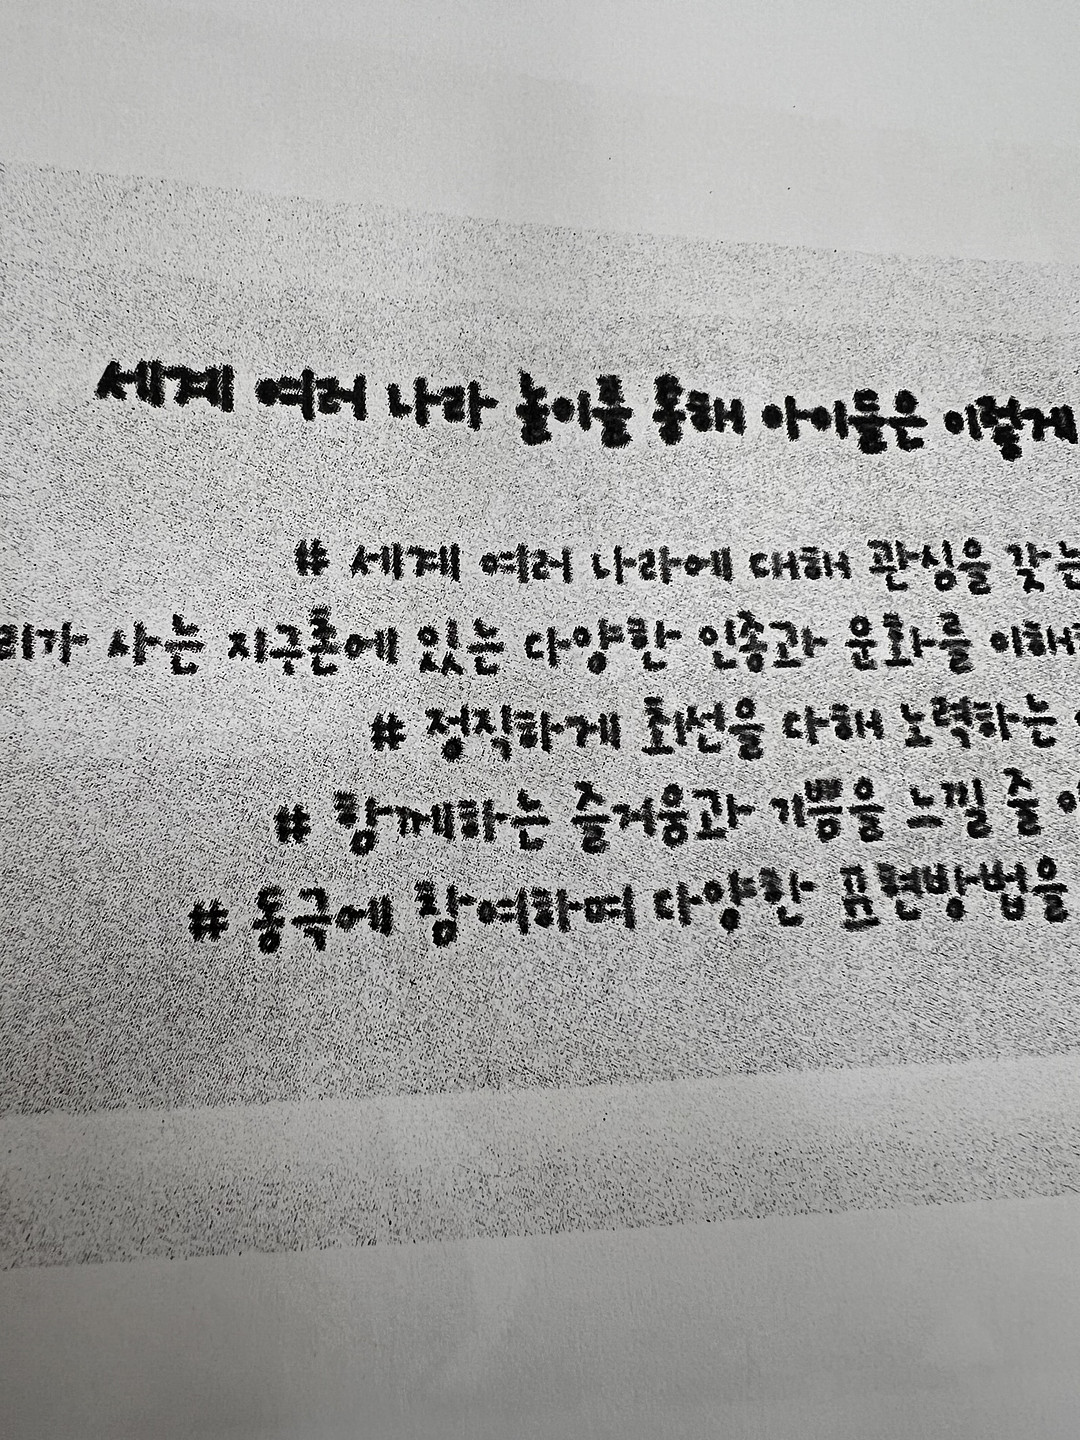 세계 여러 나라 놀이를 통해 아이들은 이렇게
# 세계 여러 나라에 대해 관심을 갖는
리가 사는 지구촌에 있는 다양한 인종과 문화를 이해하
# 정직하게 최선을 다해 노력하는
# 함께하는 즐거움과 기쁨을 느낄 줄 아
# 동극에 참여하며 다양한 표현방법을